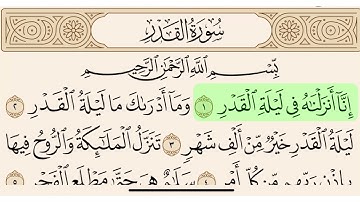 سُورَةُ ٱلْقَدْرِ
بِسْمِ ٱللَّهِ ٱلرَّحْمَٰنِ ٱلرَّحِيمِ
إِنَّآ أَنزَلْنَٰهُ فِى لَيْلَةِ ٱلْقَدْرِ ١ وَمَآ أَدْرَىٰكَ مَا لَيْلَةُ ٱلْقَدْرِ ٢
لَيْلَةُ ٱلْقَدْرِ خَيْرٌ مِّنْ أَلْفِ شَهْرٍ ٣ تَنَزَّلُ ٱلْمَلَٰٓئِكَةُ وَٱلرُّوحُ فِيهَا
بِإِذْنِ رَبِّهِم مِّن كُلِّ أَمْرٍ ٤ سَلَٰمٌ هِىَ حَتَّىٰ مَطْلَعِ ٱلْفَجْرِ ٥